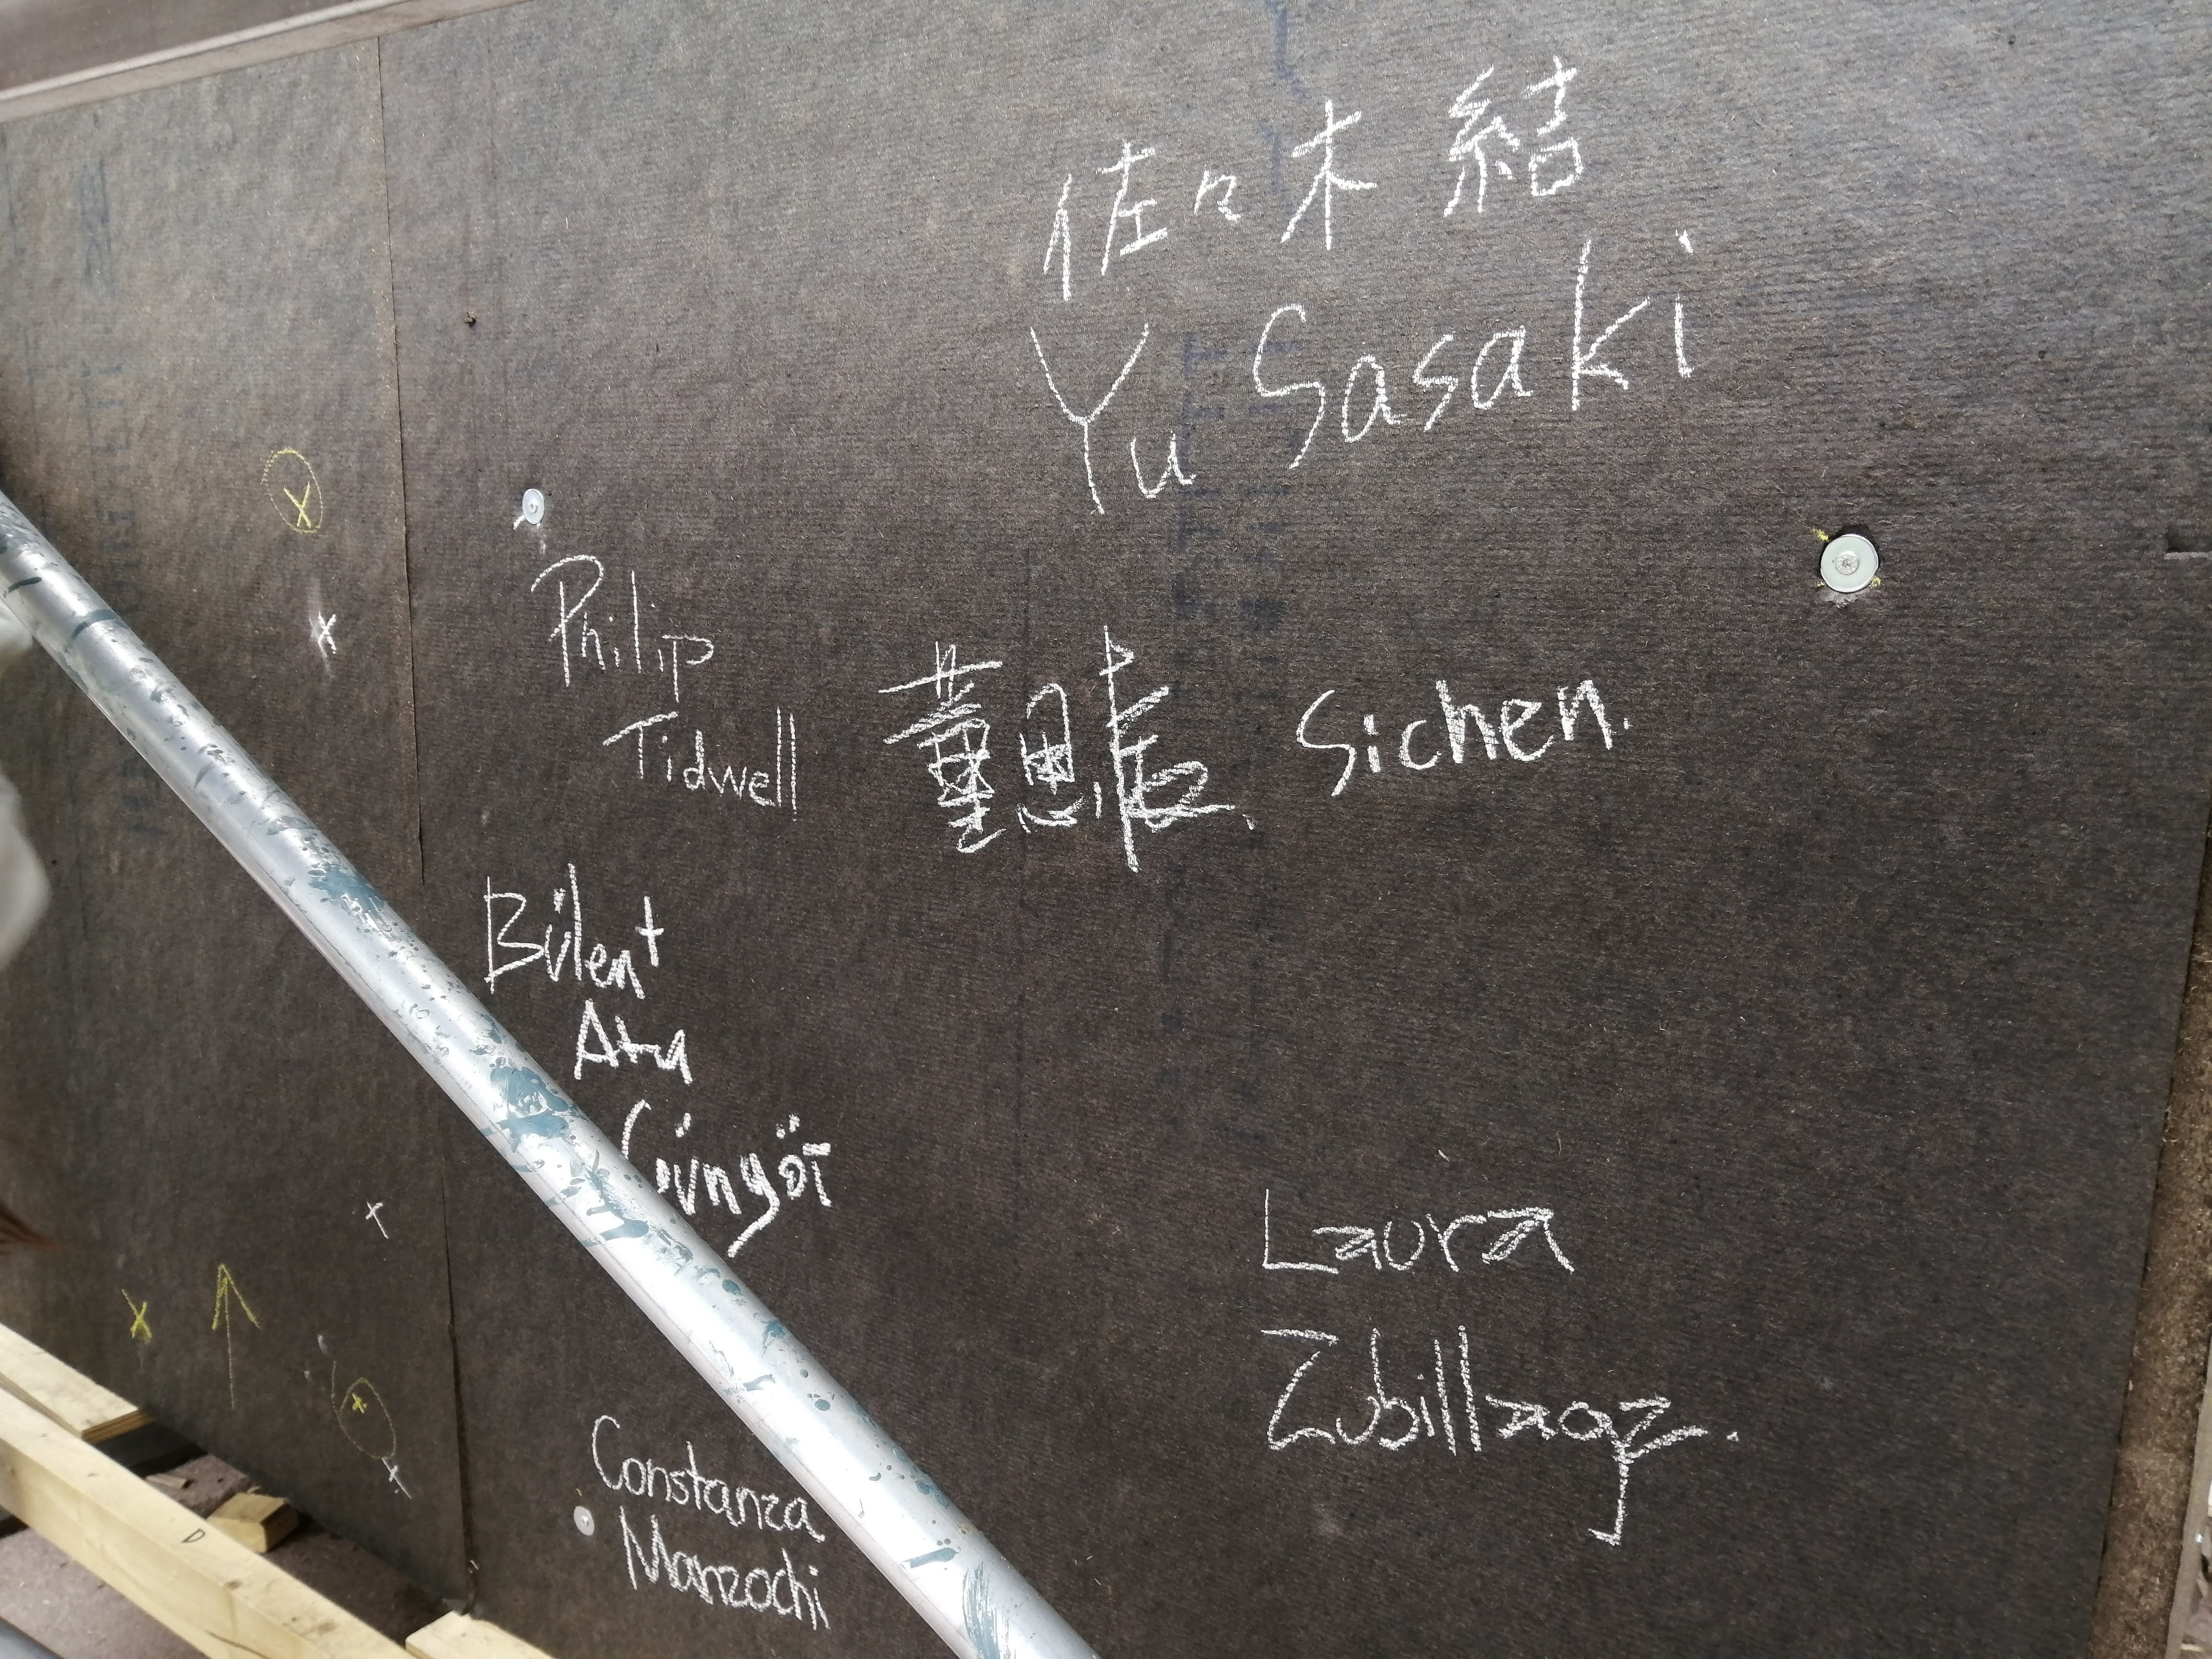 佐々木 結
Yu Sasaki
Philip
Tidwell
董思 Sichen.
Bülent
Ata
Güngör
Laura
Zubillaga.
Constanza
Manzochi
D